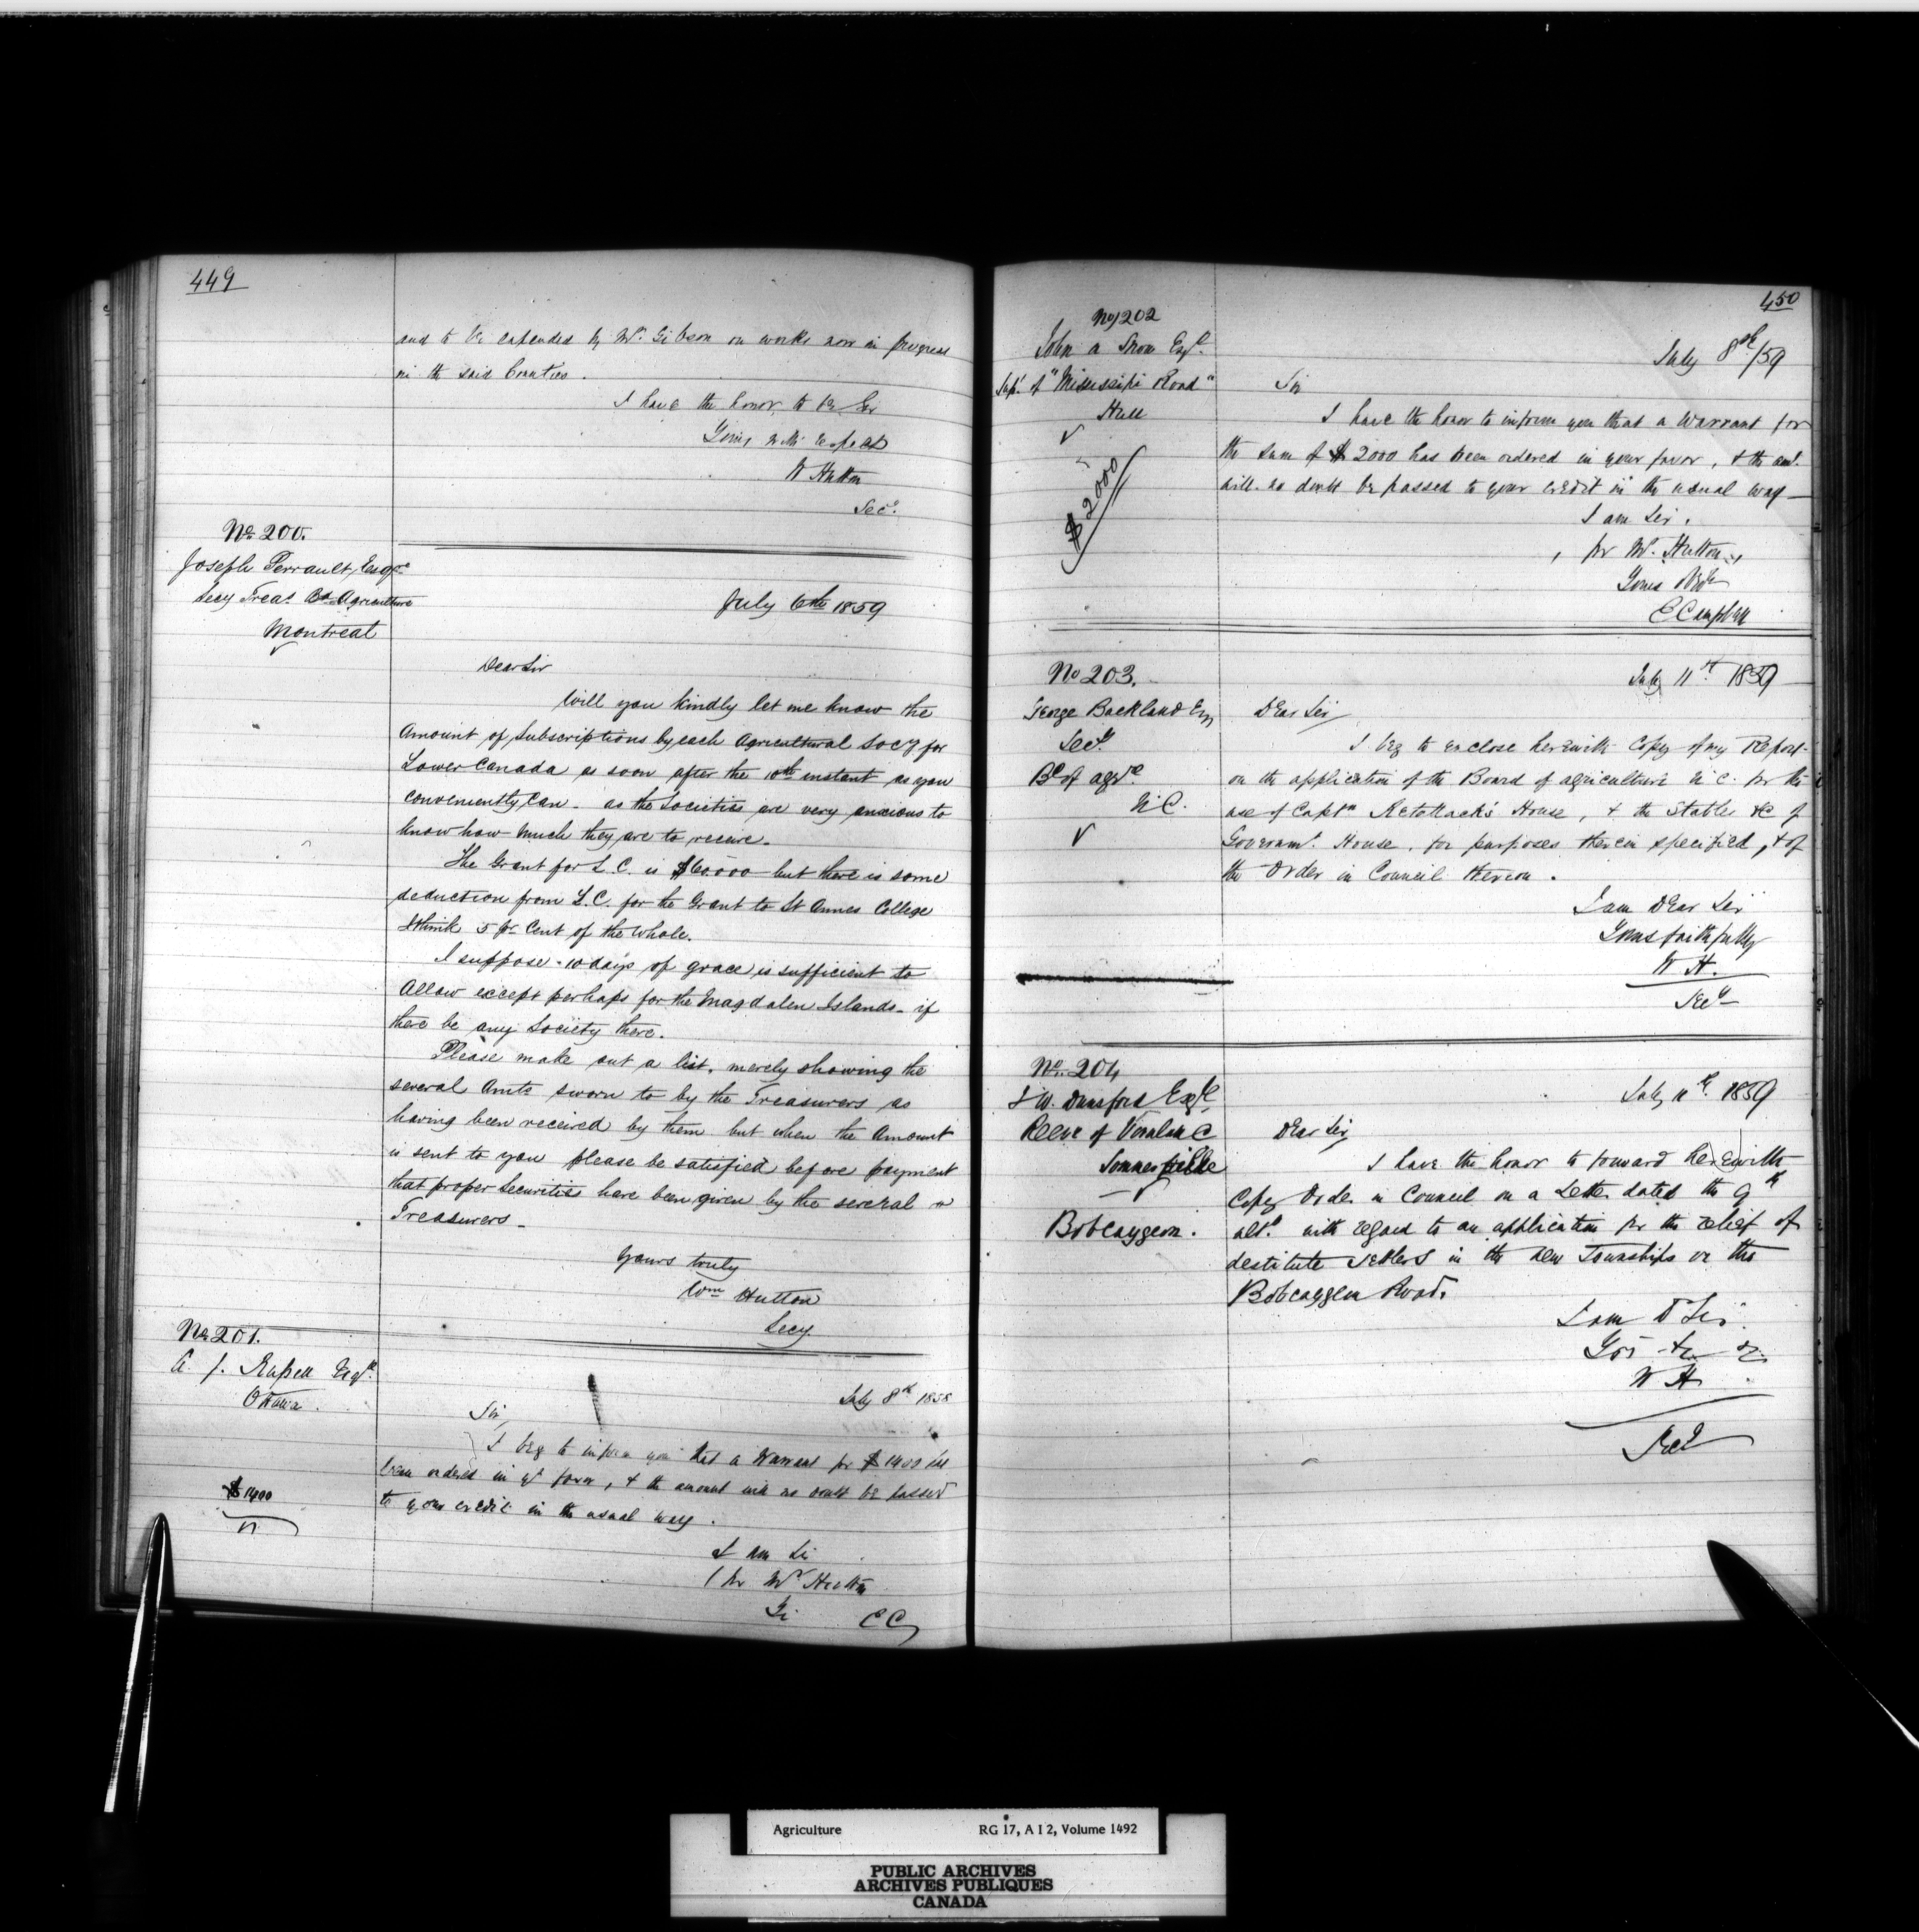 449
and to be expended by Mr. Gibson on works now in progress
in the said Counties.
I have the honor to be Sir
Yours with respect
W Hutton
Secy.
No. 200.
Joseph Perrault, Esqre
Secy Treas. Bd. Agriculture
Montreal
July 6th 1859
Dear Sir
Will you kindly let me know the
Amount of Subscriptions by each Agricultural Socy for
Lower Canada as soon after the 10th instant as you
conveniently can - as the Societies are very anxious to
know how much they are to receive.
The Grant for L.C. is $60.000 but there is some
deduction from L.C. for the Grant to St Annes College
I think 5 pr Cent of the whole.
I suppose 10 days of grace is sufficient to
Allow except perhaps for the Magdalen Islands - if
there be any Society there.
Please make out a list, merely showing the
several Amts sworn to by the Treasurers as
having been received by them but when the Amount
is sent to you please be satisfied before payment
that proper Securities have been given by the several
Treasurers -
Yours truly
Wm Hutton
Secy
No 201.
A. J. Russell Esqr.
Ottawa.
$1400
July 8th 1858
Sir,
I beg to inform you that a Warrant for $1400 has
been ordered in yr favor, & the amount will no doubt be passed
to your credit in the usual way.
I am Sir
for Mr Hutton
CC
450
No 202
John A Snow Esqr.
Supt. of "Mississipi Road"
Hull
$2000
July 8th/59
Sir
I have the honor to inform you that a Warrant for
the sum of $2000 has been ordered in your favor, & the amt.
will no doubt be passed to your credit in the usual way -
I am Sir.
for Mr. Hutton,
Yours
C Campbell
No 203.
George Buckland Esq
Secy.
Bd of Agre
U.C.
July 11th 1859
Dear Sir
I beg to enclose herewith Copy of my Report
on the application of the Board of Agriculture U.C. for the
use of Captn House, & the Stables &c of
Governmt. House, for purposes therein specified, & of
the Order in Council thereon.
I am Dear Sir
Yours faithfully
W H.
Secy
No. 204
J W. Dunsford Esqr,
Reeve of Verulam &c
Bobcaygeon.
July 11th. 1859
Dear Sir,
I have the honor to forward herewith
Copy Order in Council on a Letter dated the 9th
ult. with regard to an application for the relief of
destitute settlers in the new Townships on the
Bobcaygeon Road.
I am D Sir
Yrs &c &c
W H
Secy
Agriculture RG 17, A I 2, Volume 1492
PUBLIC ARCHIVES
ARCHIVES PUBLIQUES
CANADA